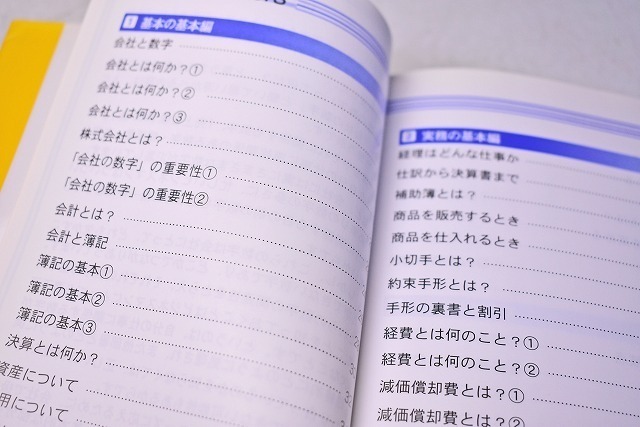 1 基本の基本編
会社と数字
会社とは何か?①
会社とは何か?②
会社とは何か?③
株式会社とは?
「会社の数字」の重要性①
「会社の数字」の重要性②
会計とは?
会計と簿記
簿記の基本①
簿記の基本②
簿記の基本③
決算とは何か?
資産について
用について
2 実務の基本編
経理はどんな仕事か
仕訳から決算書まで
補助簿とは?
商品を販売するとき
商品を仕入れるとき
小切手とは?
約束手形とは?
手形の裏書と割引
経費とは何のこと?①
経費とは何のこと?②
減価償却費とは?①
減価償却費とは?②